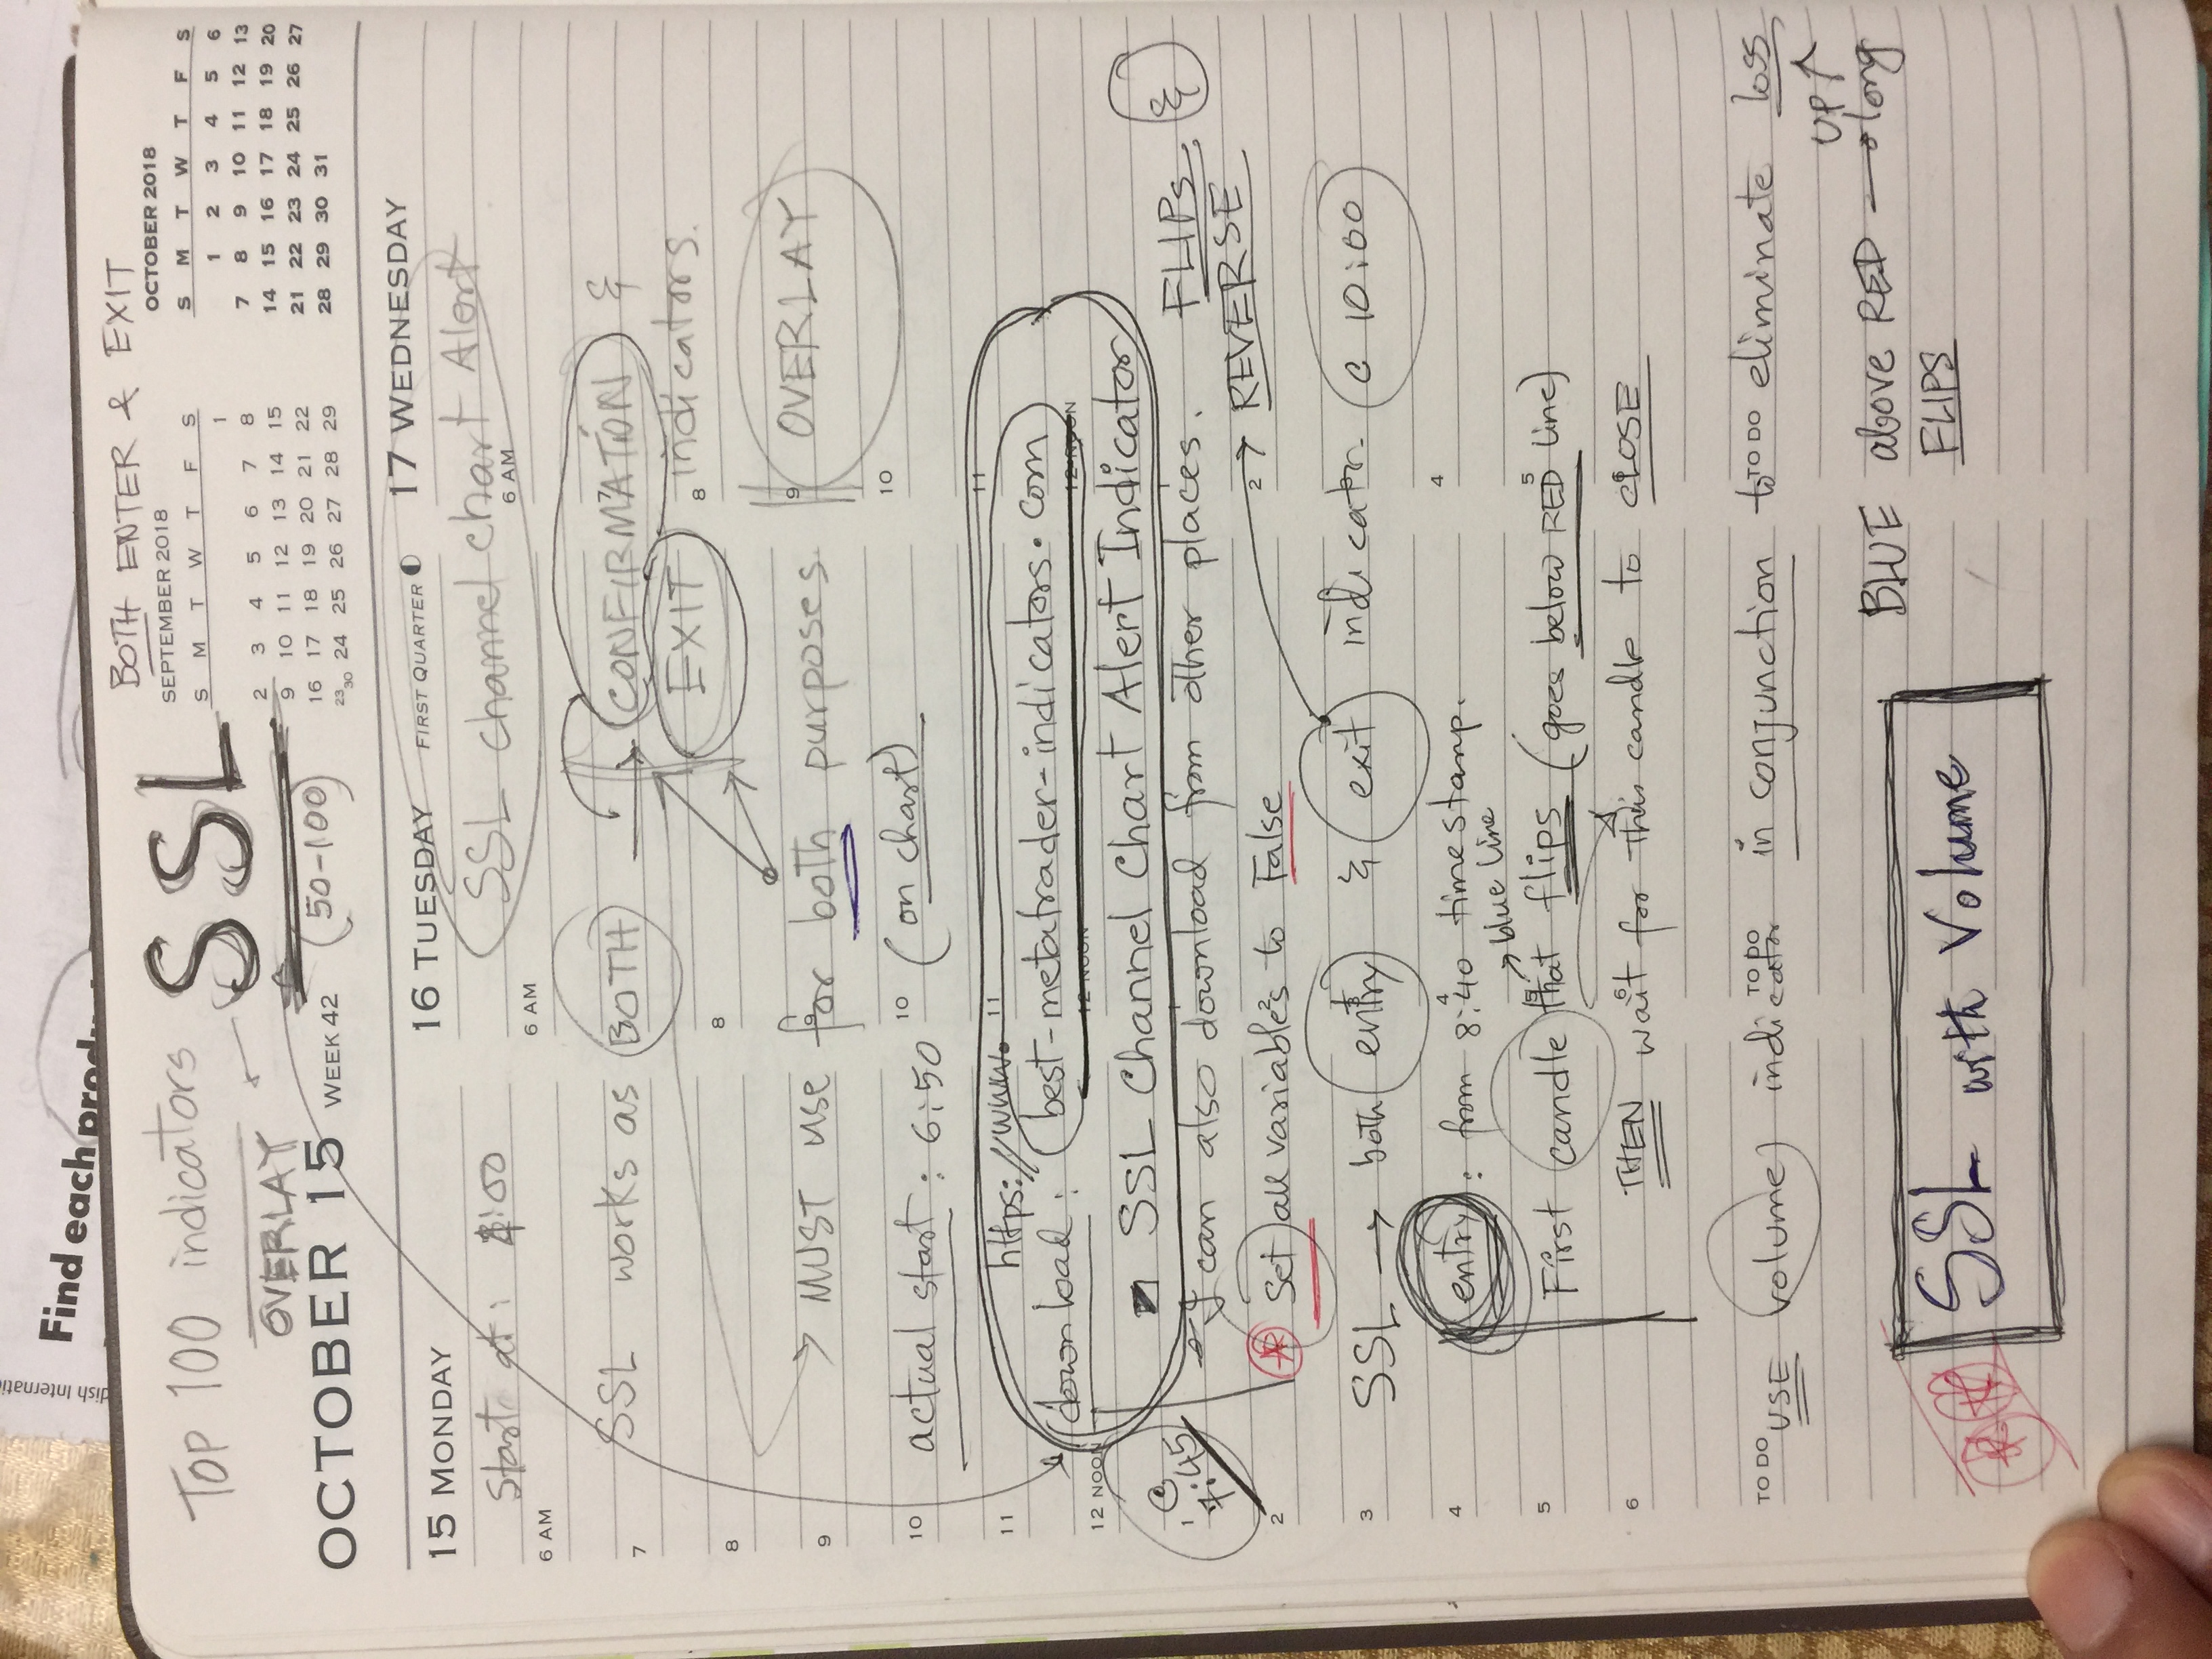 dish Internati
Find each produ
BOTH ENTER & EXIT
Top 100 indicators
SSL
OVERLAY
(50-100)
OCTOBER 15 WEEK 42
SEPTEMBER 2018
S M T W T F S
1
2 3 4 5 6 7 8
9 10 11 12 13 14 15
16 17 18 19 20 21 22
23 30 24 25 26 27 28 29
OCTOBER 2018
S M T W T F S
1 2 3 4 5 6
7 8 9 10 11 12 13
14 15 16 17 18 19 20
21 22 23 24 25 26 27
28 29 30 31
15 MONDAY
16 TUESDAY FIRST QUARTER
17 WEDNESDAY
SSL channel chart Alert
Start at:
6 AM 6 AM 6 AM
SSL works as BOTH → CONFIRMATION &
7 7
EXIT indicators.
8 8 8
OVERLAY
→ MUST use for both purposes
9 9 9
10 10 10
actual start : 6:50 (on chart)
11 11 11
https://www.
download : best-metatrader-indicators.com
12 NOON 12 NOON 12 NOON
SSL Channel Chart Alert Indicator
@ 7:45
I can also download from other places. FLIPs &
→ REVERSE
1
2 2 2
Set all variables to False
3 3
SSL → both entry & exit indicator. @ 10:00
4 4 4
entry : from 8:40 timestamp.
→ blue line
5 5 5
First candle that flips (goes below RED line)
6 6 6
THEN wait for this candle to CLOSE
TO DO TO DO TO DO
USE volume indicator in conjunction to eliminate loss
UP ↑
BLUE above RED → long
FLIPS
SSL with Volume